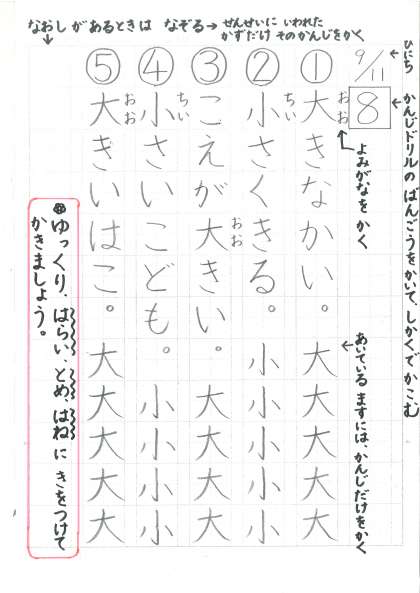 なおしがあるときは なぞる→
せんせいに いわれた
かずだけ そのかんじをかく
ひにち
9/11
8
かんじドリルの ばんごうをかいて、しかくで かこむ
よみがなを かく
あいている ますには、かんじだけをかく
① 大きなかい。大大大大大
おお
② 小さくきる。小小小小小
ちい
③ こえが大きい。大大大大
おお
④ 小さいこども。小小小小
ちい
⑤ 大きいはこ。大大大大大
おお
ゆっくり、はらい、とめ、はねに きをつけて
かきましょう。